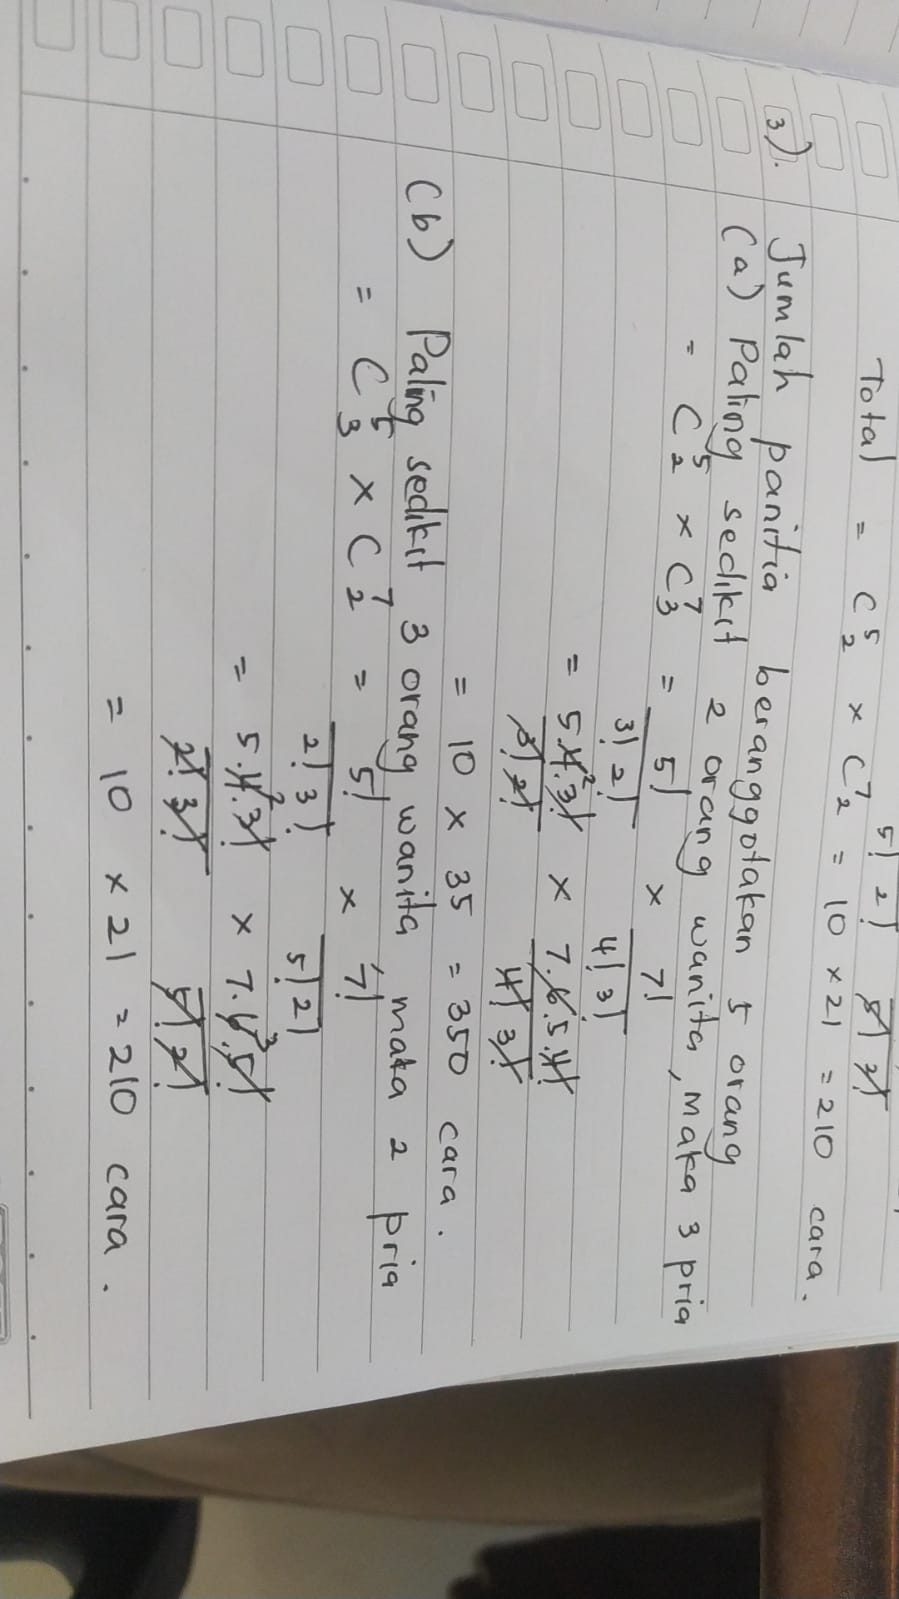 5! 2! 5! 2!
Total = C⁵₂ × C⁷₂ = 10 × 21 = 210 cara.
3). Jumlah panitia beranggotakan 5 orang
(a) Paling sedikit 2 orang wanita, maka 3 pria
= C⁵₂ × C⁷₃ = 5! × 7!
3! 2! 4! 3!
= 5.4².3! × 7.6.5.4!
3! 2! 4! 3!
= 10 × 35 = 350 cara.
(b) Paling sedikit 3 orang wanita, maka 2 pria
= C⁵₃ × C⁷₂ = 5! × 7!
2! 3! 5! 2!
= 5.4².3! × 7.6³.5!
2! 3! 5! 2!
= 10 × 21 = 210 cara.